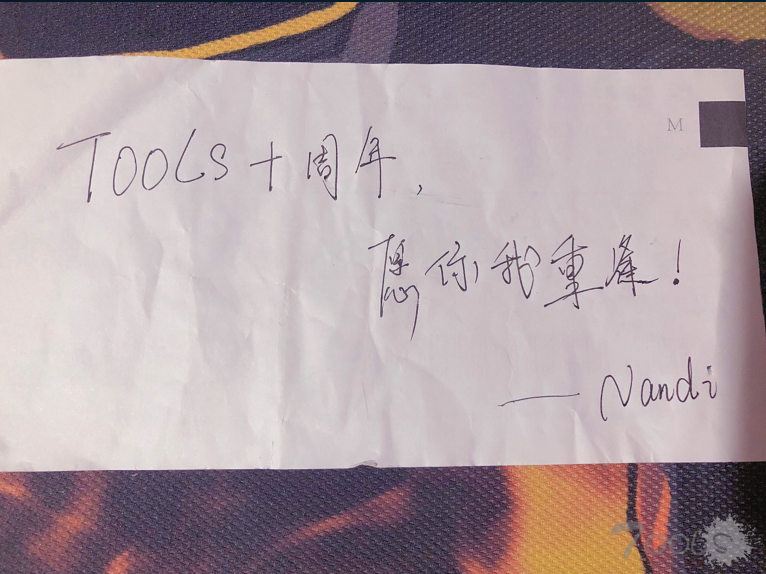 TOOLS十周年,
愿你我重逢!
—Nandi
M
T00LS